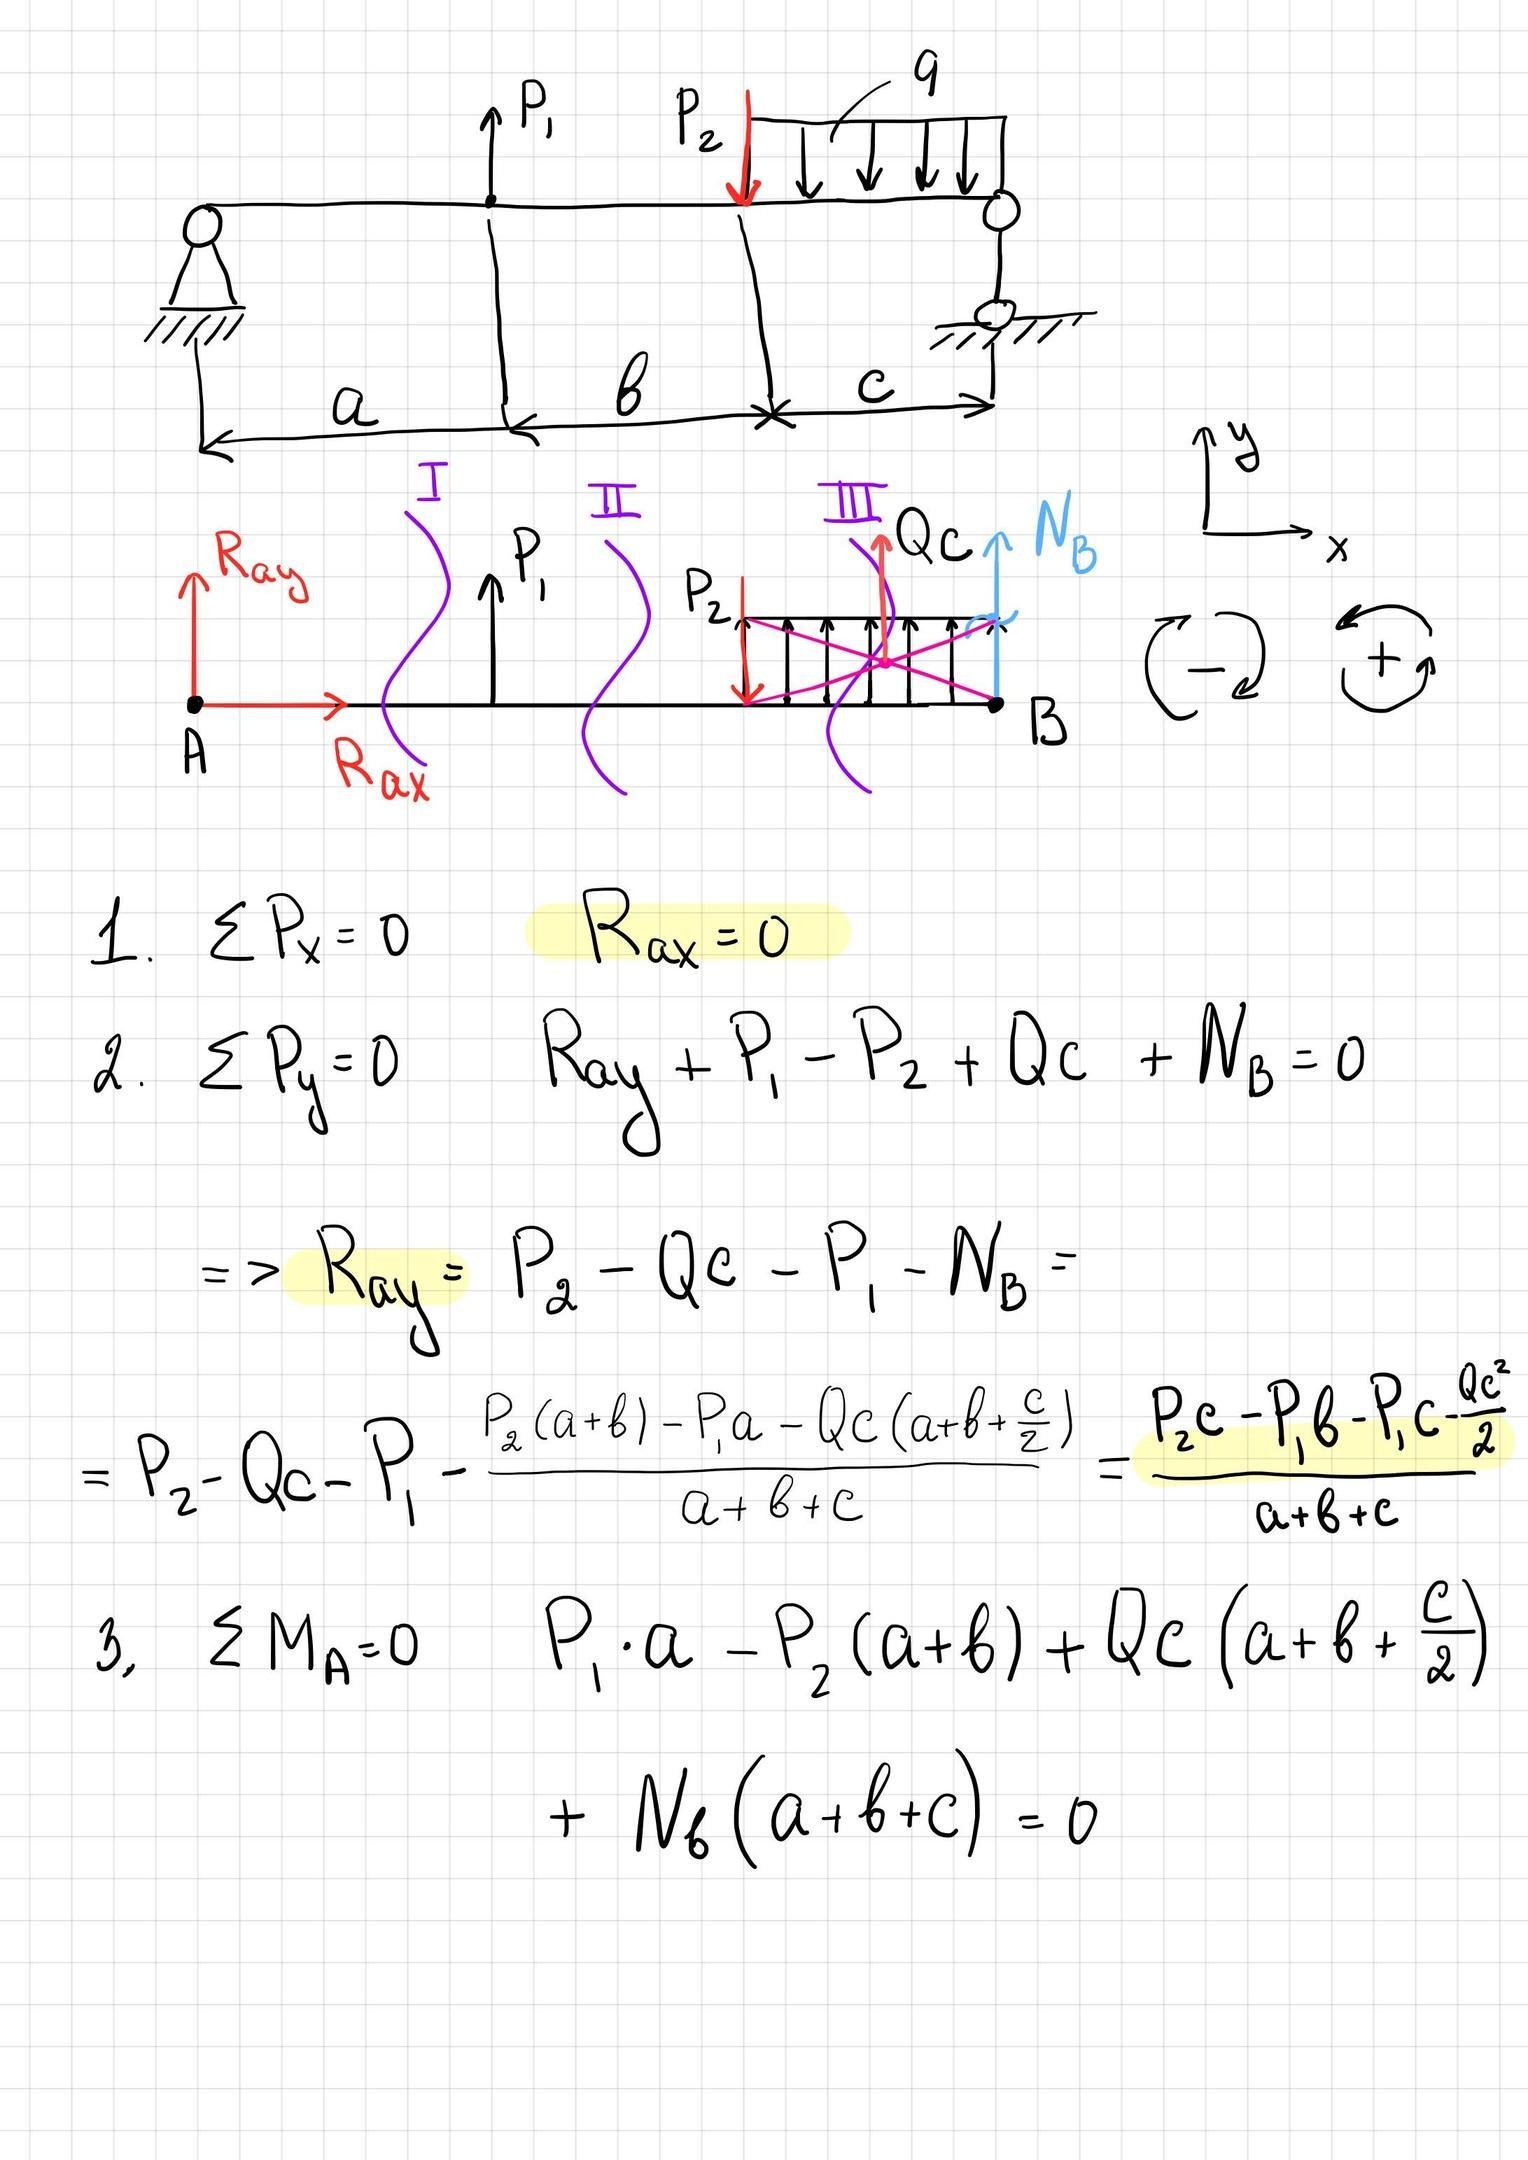 P₁ P₂ q
a b c
I II III
Ray P₁ P₂ Qc N_B y x
A Rax B - +
1. ΣPx = 0 Rax = 0
2. ΣPy = 0 Ray + P₁ - P₂ + Qc + N_B = 0
=> Ray = P₂ - Qc - P₁ - N_B =
= P₂ - Qc - P₁ - (P₂(a+b) - P₁a - Qc(a+b+c/2))/(a+b+c) = (P₂c - P₁b - P₁c - Qc²/2)/(a+b+c)
3. ΣM_A = 0 P₁·a - P₂(a+b) + Qc(a+b+c/2)
+ N_b(a+b+c) = 0